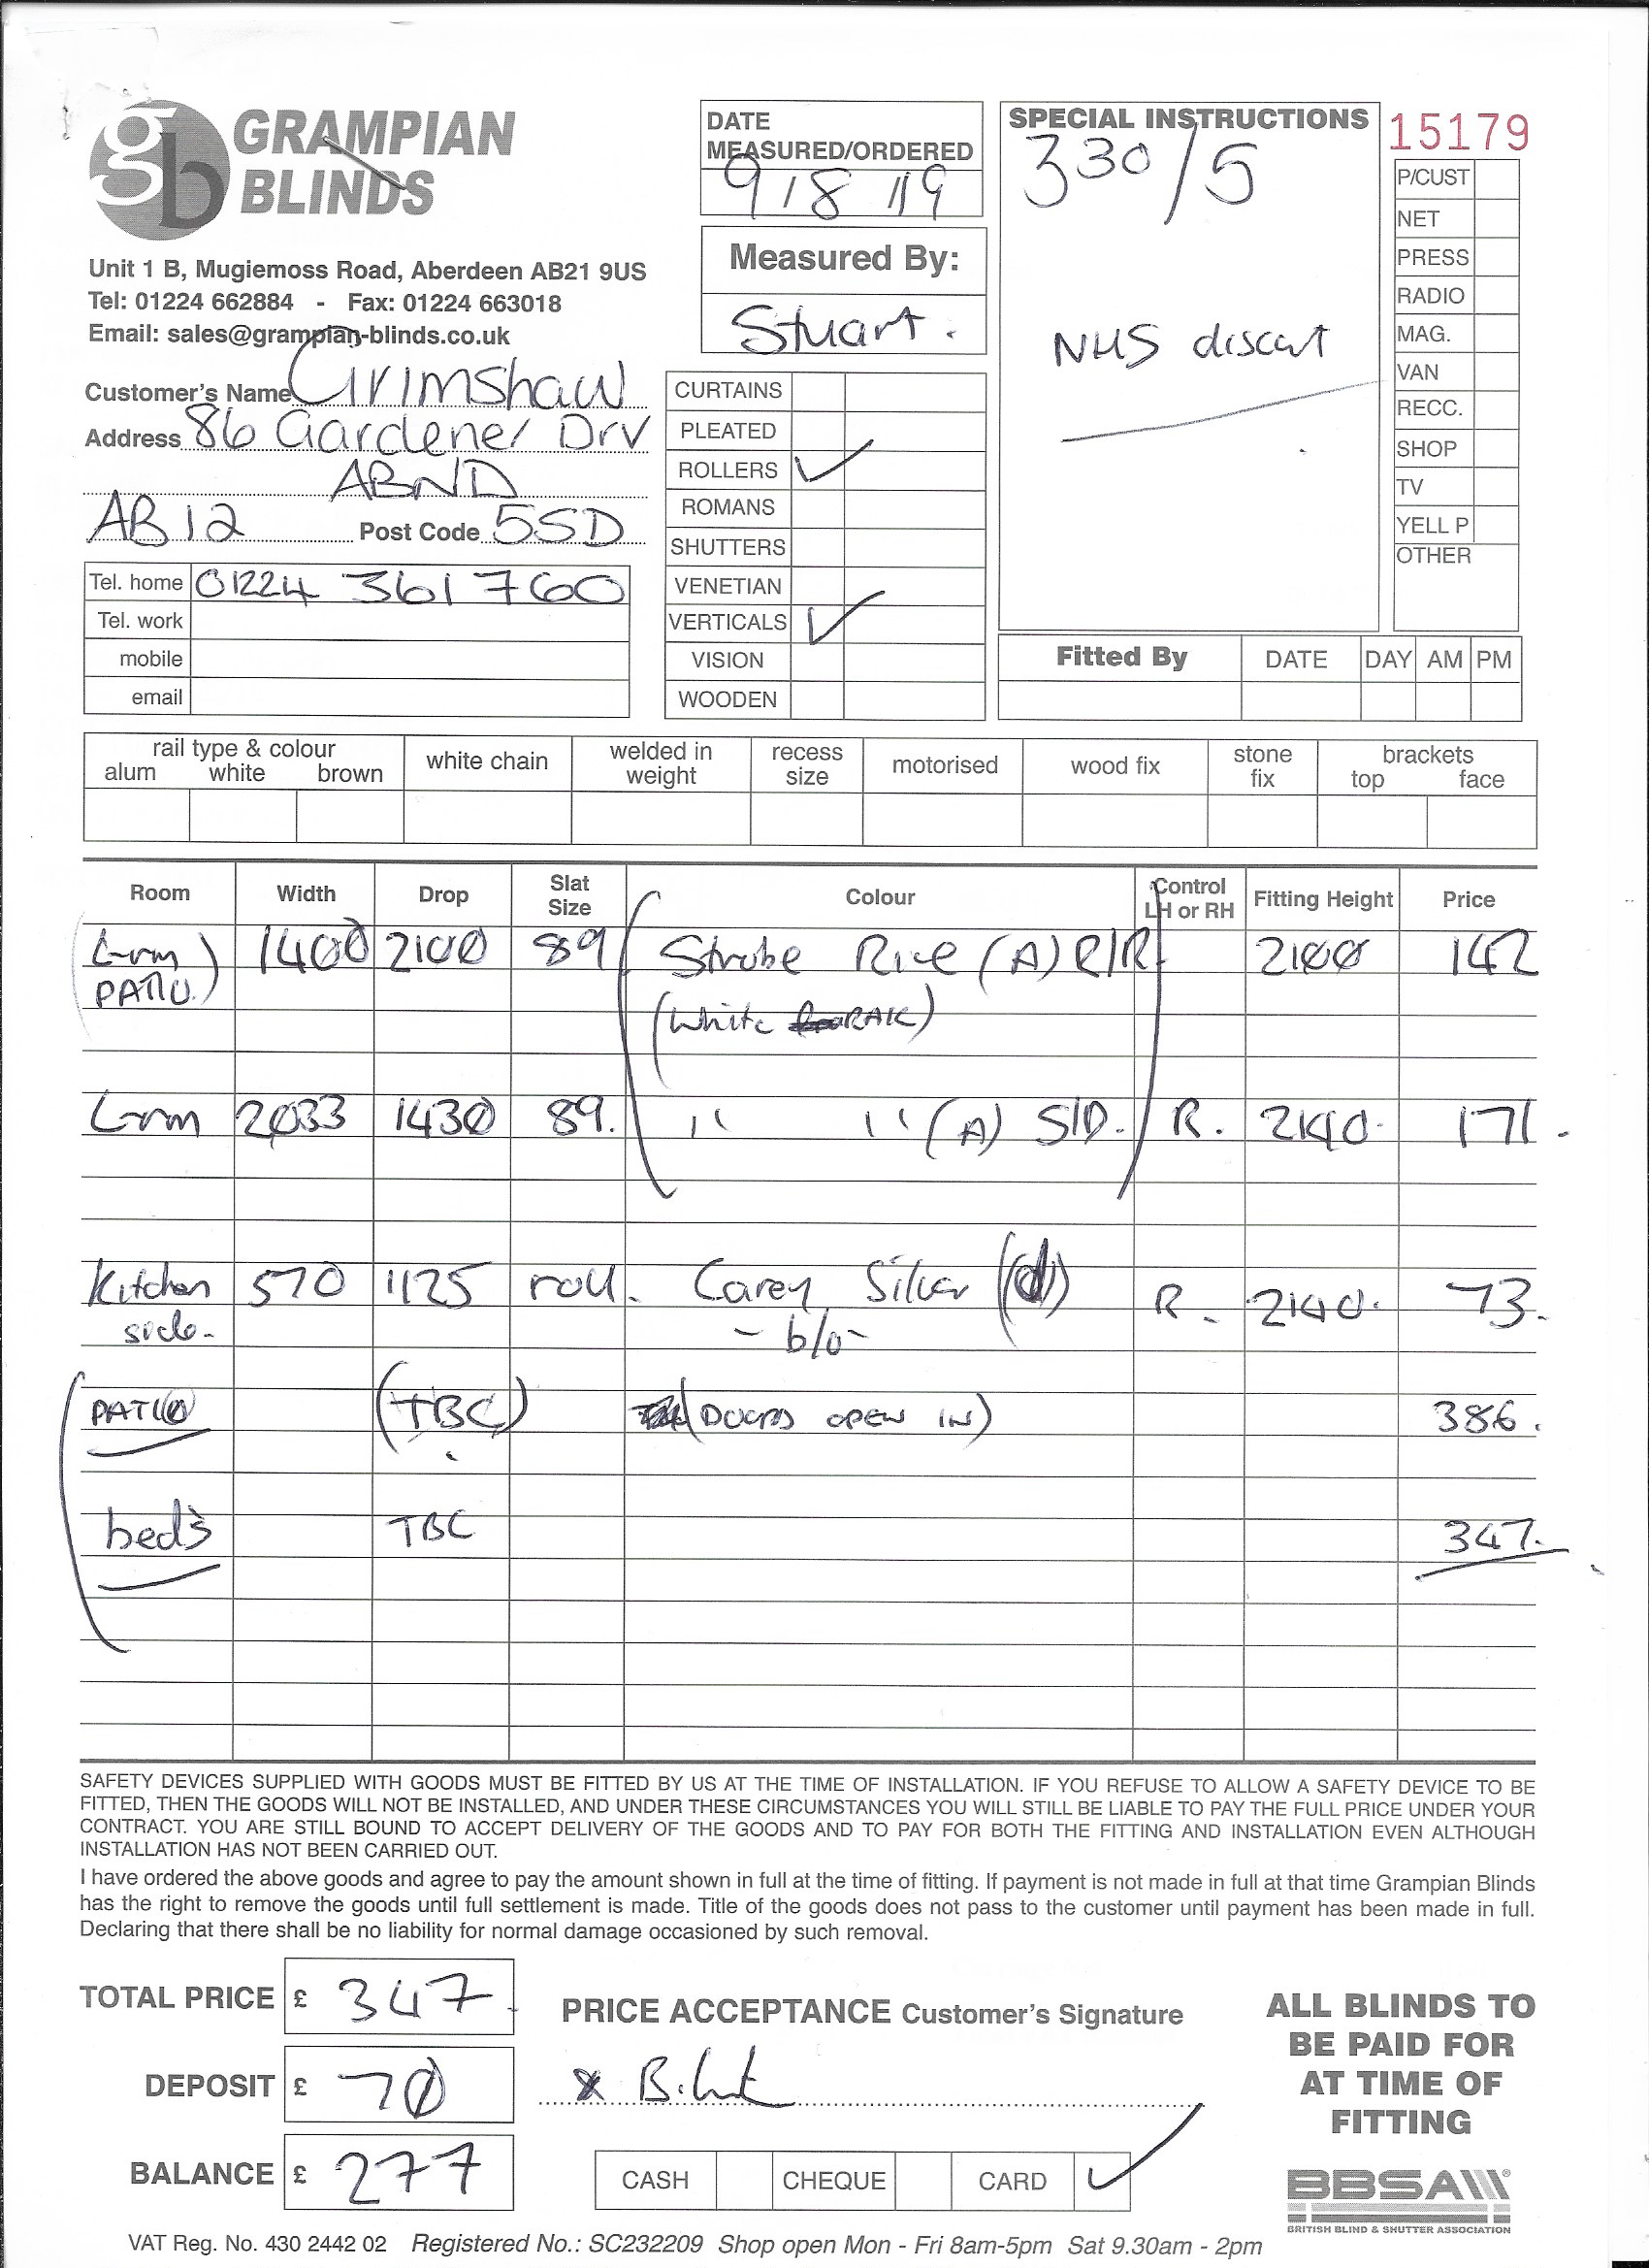 gb GRAMPIAN BLINDS
Unit 1 B, Mugiemoss Road, Aberdeen AB21 9US
Tel: 01224 662884 - Fax: 01224 663018
Email: sales@grampian-blinds.co.uk
Customer's Name Grimshaw
Address 86 Gardener Drv
ABND
AB12 Post Code 5SD
Tel. home 01224 361760
Tel. work
mobile
email
DATE
MEASURED/ORDERED
9/8/19
Measured By:
Stuart.
CURTAINS
PLEATED
ROLLERS ✓
ROMANS
SHUTTERS
VENETIAN
VERTICALS ✓
VISION
WOODEN
SPECIAL INSTRUCTIONS
330/5
NHS discont
15179
P/CUST
NET
PRESS
RADIO
MAG.
VAN
RECC.
SHOP
TV
YELL P
OTHER
Fitted By DATE DAY AM PM
rail type & colour white chain welded in weight recess size motorised wood fix stone fix brackets
alum white brown top face
Room Width Drop Slat Size Colour Control LH or RH Fitting Height Price
L-rm 1400 2100 89 Strobe Rice (A) R/R 2100 142
PATIO. (White)
L-rm 2033 1430 89. " " (A) S/D. R. 2140. 171.
Kitchen 570 1125 roll. Carey Silver R. 2140. 73.
side. - b/o -
PATIO (TBC) (DOORS OPEN IN) 386.
bed's TBC 347.
SAFETY DEVICES SUPPLIED WITH GOODS MUST BE FITTED BY US AT THE TIME OF INSTALLATION. IF YOU REFUSE TO ALLOW A SAFETY DEVICE TO BE
FITTED, THEN THE GOODS WILL NOT BE INSTALLED, AND UNDER THESE CIRCUMSTANCES YOU WILL STILL BE LIABLE TO PAY THE FULL PRICE UNDER YOUR
CONTRACT. YOU ARE STILL BOUND TO ACCEPT DELIVERY OF THE GOODS AND TO PAY FOR BOTH THE FITTING AND INSTALLATION EVEN ALTHOUGH
INSTALLATION HAS NOT BEEN CARRIED OUT.
I have ordered the above goods and agree to pay the amount shown in full at the time of fitting. If payment is not made in full at that time Grampian Blinds
has the right to remove the goods until full settlement is made. Title of the goods does not pass to the customer until payment has been made in full.
Declaring that there shall be no liability for normal damage occasioned by such removal.
TOTAL PRICE £ 347.
DEPOSIT £ 70
BALANCE £ 277
PRICE ACCEPTANCE Customer's Signature
x
CASH CHEQUE CARD ✓
ALL BLINDS TO
BE PAID FOR
AT TIME OF
FITTING
BBSA
BRITISH BLIND & SHUTTER ASSOCIATION
VAT Reg. No. 430 2442 02 Registered No.: SC232209 Shop open Mon - Fri 8am-5pm Sat 9.30am - 2pm